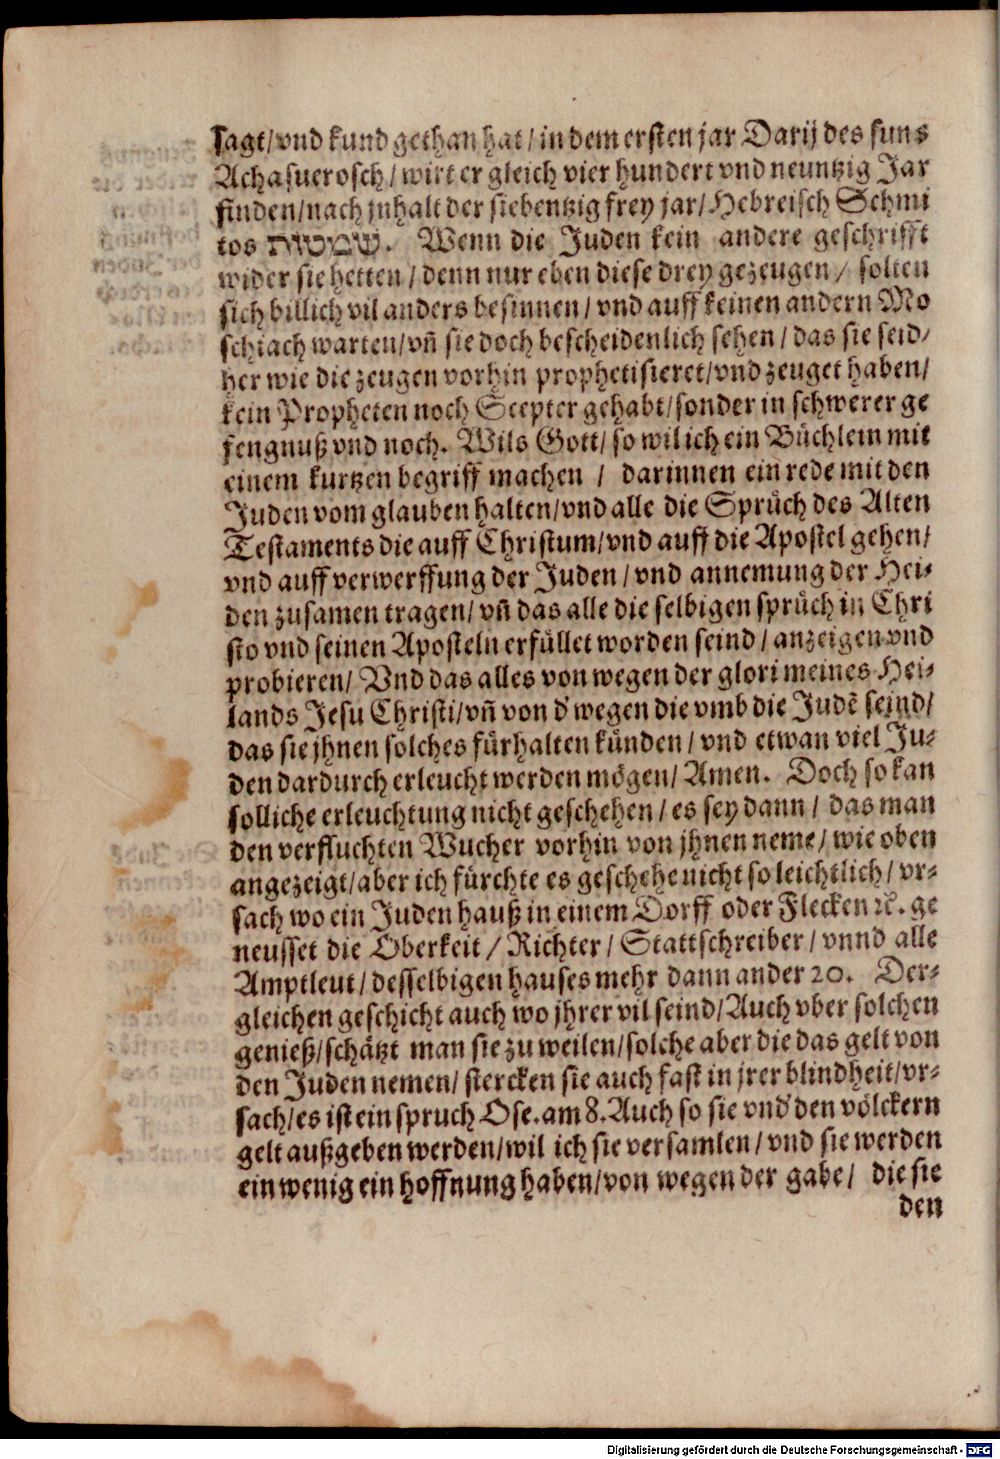 sagt/vnd kund gethan hat/in dem ersten jar Darij des suns
Achasuerosch/wirt er gleich vier hundert vnd neuntzig Jar
finden/nach jnhalt der siebentzig frey jar/Hebreisch Schmi
tos שמטות. Wenn die Juden kein andere geschrifft
wider sie hetten/denn nur eben diese drey gezeugen/ solten
sich billich vil anders besinnen/vnd auff keinen andern Mo
schiach warten/vñ sie doch bescheidenlich sehen/das sie seid/
her wie die zeugen vorhin prophetisieret/vnd zeuget haben/
kein Propheten noch Scepter gehabt/sonder in schwerer ge
fengnuß vnd noch. Wils Gott/so wil ich ein Büchlein mit
einem kurtzen begriff machen / darinnen ein rede mit den
Juden vom glauben halten/vnd alle die Sprüch des Alten
Testaments die auff Christum/vnd auff die Apostel gehen/
vnd auff verwerffung der Juden/vnd annemung der Hei-
den zusamen tragen/vñ das alle die selbigen sprüch in Chri
sto vnd seinen Aposteln erfüllet worden seind/anzeigen vnd
probieren/ Vnd das alles von wegen der glori meines Hei-
lands Jesu Christi/vñ von d' wegen die vmb die Judẽ seind/
das sie jhnen solches fürhalten künden/vnd etwan viel Ju-
den dardurch erleucht werden mögen/Amen. Doch so kan
solliche erleuchtung nicht geschehen/es sey dann/das man
den verfluchten Wucher vorhin von jhnen neme/wie oben
angezeigt/aber ich fürchte es geschehe nicht so leichtlich/vr-
sach wo ein Juden hauß in einem Dorff oder Flecken ꝛc. ge
neusset die Oberkeit/Richter/Stattschreiber/vnnd alle
Amptleut/desselbigen hauses mehr dann ander 20. Der-
gleichen geschicht auch wo jhrer vil seind/Auch vber solchen
genieß/schätzt man sie zu weilen/solche aber die das gelt von
den Juden nemen/stercken sie auch fast in jrer blindheit/vr-
sach/es ist ein spruch Ose.am 8.Auch so sie vnd' den völckern
gelt außgeben werden/wil ich sie versamlen/vnd sie werden
ein wenig ein hoffnung haben/von wegen der gabe/ die sie
den
Digitalisierung gefördert durch die Deutsche Forschungsgemeinschaft - DFG